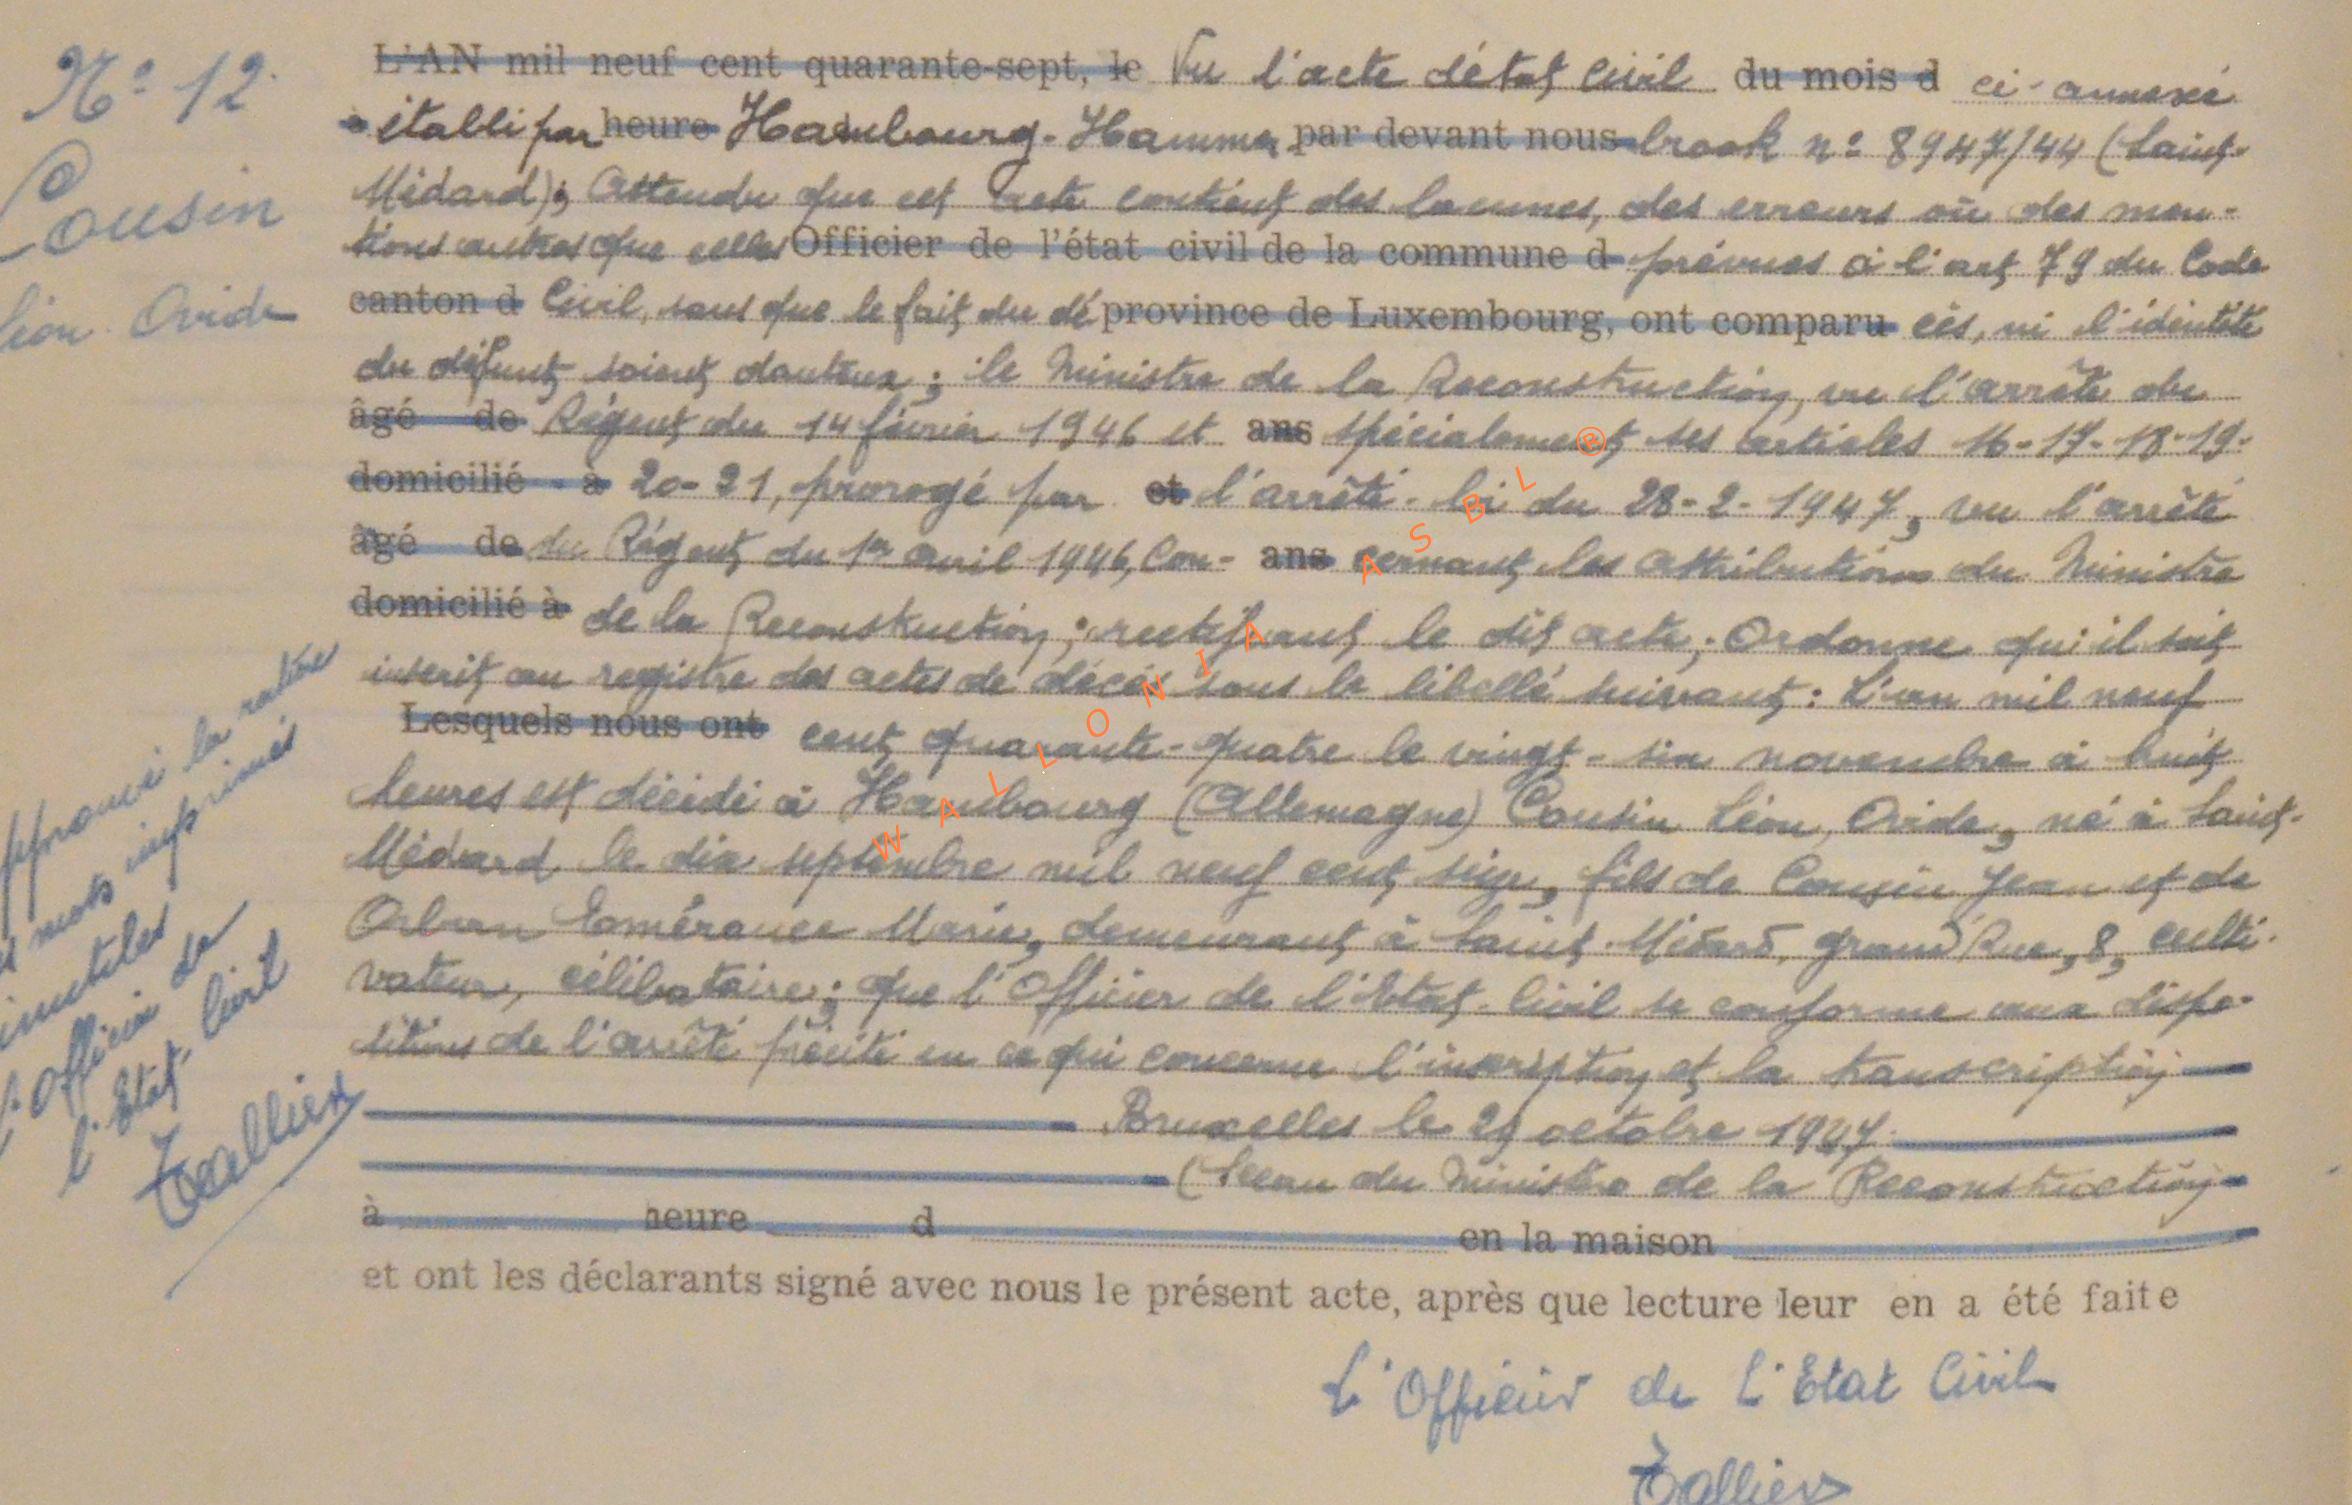 N° 12.
Cousin
Léon Ovide
L'AN mil neuf cent quarante-sept, le Vu l'acte d'état Civil du mois d ci-annexé
à établi par heure Hambourg-Hamme par devant nous brook n° 8947/44 (Saint-
Médard); Attendu que cet acte contient des lacunes, des erreurs ou des men-
tions autres que celles Officier de l'état civil de la commune d prévues à l'art 79 du Code
canton d Civil, sans que le fait du dé province de Luxembourg, ont comparu cès, ni l'identité
du défunt soient douteux; le Ministre de la Reconstruction, vu l'arrêté du
âgé de Régent du 14 février 1946 et ans spécialement ses articles 16-17-18-19-
domicilié à 20-21, prorogé par et l'arrêté-loi du 28-2-1947, vu l'arrêté
âgé de du Régent du 1er avril 1946, Con- ans cernant les attributions du Ministre
domicilié à de la Reconstruction; rectifiant le dit acte; Ordonne qu'il soit
inscrit au registre des actes de décès sous le libellé suivant: L'an mil neuf
Lesquels nous ont cent quarante-quatre le vingt-six novembre à huit
heures est décédé à Hambourg (Allemagne) Cousin Léon, Ovide, né à Saint-
Médard le dix septembre mil neuf cent seize, fils de Cousin Jean et de
Orban Emérance Marie, demeurant à Saint-Médard, grand'Rue, 8, culti-
vateur, célibataire; que l'Officier de l'Etat-Civil se conforme aux dispo-
sitions de l'arrêté précité en ce qui concerne l'inscription et la transcription
Bruxelles le 29 octobre 1947.
(Sceau du Ministre de la Reconstruction
à heure d en la maison
et ont les déclarants signé avec nous le présent acte, après que lecture leur en a été faite
L'Officier de L'Etat Civil
Approuvé la rature
mots imprimés
inutiles
L'Officier de
l'Etat Civil
WALLONIA ASBL ®